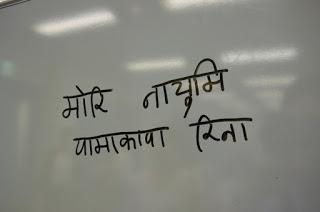 मोरि नाचुमि
यामाकावा रिना